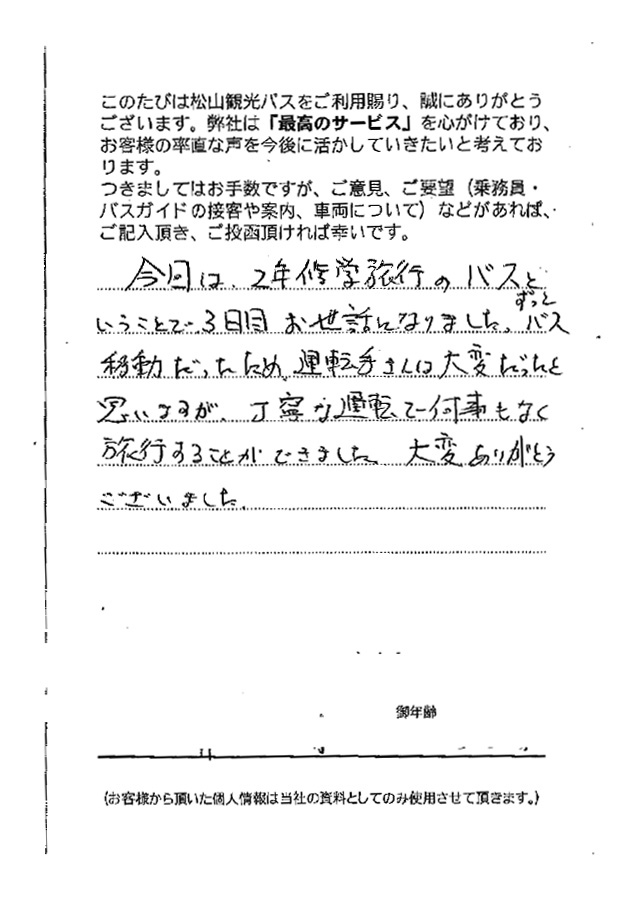 このたびは松山観光バスをご利用賜り、誠にありがとう
ございます。弊社は「最高のサービス」を心がけており、
お客様の率直な声を今後に活かしていきたいと考えてお
ります。
つきましてはお手数ですが、ご意見、ご要望（乗務員・
バスガイドの接客や案内、車両について）などがあれば、
ご記入頂き、ご投函頂ければ幸いです。
今回は、2年修学旅行のバスと
いうことで、3日間お世話になりました。ずっとバス
移動だったため、運転手さんは大変だったと
思いますが、丁寧な運転で何事もなく
旅行することができました。大変ありがとう
ございました。
御年齢
（お客様から頂いた個人情報は当社の資料としてのみ使用させて頂きます。）